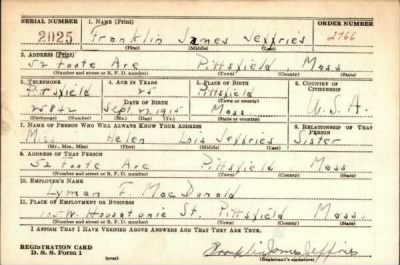 SERIAL NUMBER 1. NAME (Print) ORDER NUMBER
2025 Franklin James Jeffries 2766
(First) (Middle) (Last)
2. ADDRESS (Print)
52 Foote Ave Pittsfield Mass
(Number and street or R. F. D. number) (Town) (County) (State)
3. TELEPHONE 4. AGE IN YEARS 5. PLACE OF BIRTH 6. COUNTRY OF CITIZENSHIP
Pittsfield 25 Pittsfield
(Town or county)
DATE OF BIRTH
25842 Sept 27, 1915 Mass U.S.A.
(Exchange) (Number) (Mo.) (Day) (Yr.) (State or country)
7. NAME OF PERSON WHO WILL ALWAYS KNOW YOUR ADDRESS 8. RELATIONSHIP OF THAT PERSON
Helen Lois Jeffries Sister
(Mr., Mrs., Miss) (First) (Middle) (Last)
9. ADDRESS OF THAT PERSON
52 Foote Ave Pittsfield Mass
(Number and street or R. F. D. number) (Town) (County) (State)
10. EMPLOYER'S NAME
Lyman F. MacDonald
11. PLACE OF EMPLOYMENT OR BUSINESS
W. Housatonic St. Pittsfield Mass.
(Number and street or R. F. D. number) (Town) (County) (State)
I AFFIRM THAT I HAVE VERIFIED ABOVE ANSWERS AND THAT THEY ARE TRUE.
REGISTRATION CARD
D. S. S. Form 1 Franklin James Jeffries
(Registrant's signature)